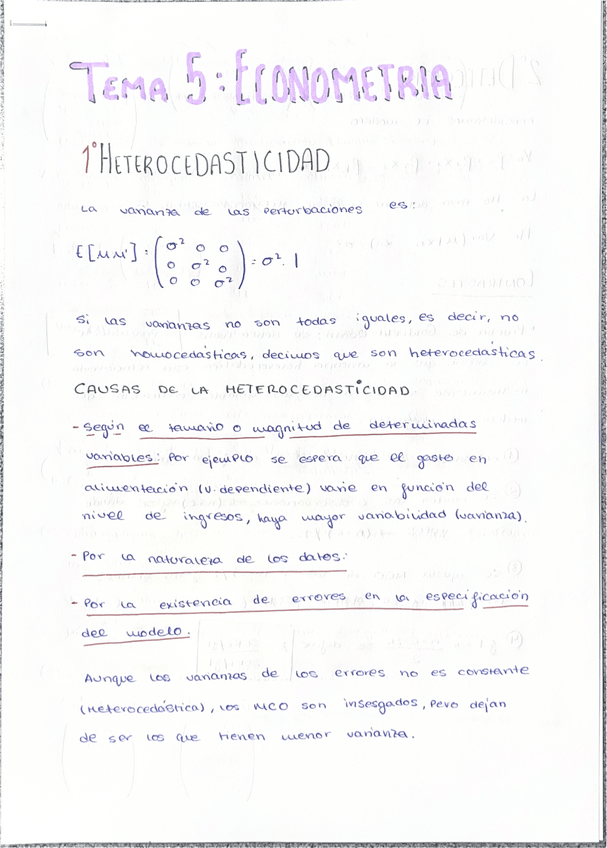 TEMA 5: ECONOMETRIA
1º HETEROCEDASTICIDAD
La varianza de las perturbaciones es:
E[μμ'] = (σ² 0 0
0 σ² 0
0 0 σ²) = σ². I
Si las varianzas no son todas iguales, es decir, no
son homocedásticas, decimos que son heterocedásticas.
CAUSAS DE LA HETEROCEDASTICIDAD
- Según el tamaño o magnitud de determinadas
variables: Por ejemplo se espera que el gasto en
alimentación (v. dependiente) varie en función del
nivel de ingresos, haya mayor variabilidad (varianza).
- Por la naturaleza de los datos.
- Por la existencia de errores en la especificación
del modelo.
Aunque las varianzas de los errores no es constante
(Heterocedástica), los MCO son insesgados, pero dejan
de ser los que tienen menor varianza.